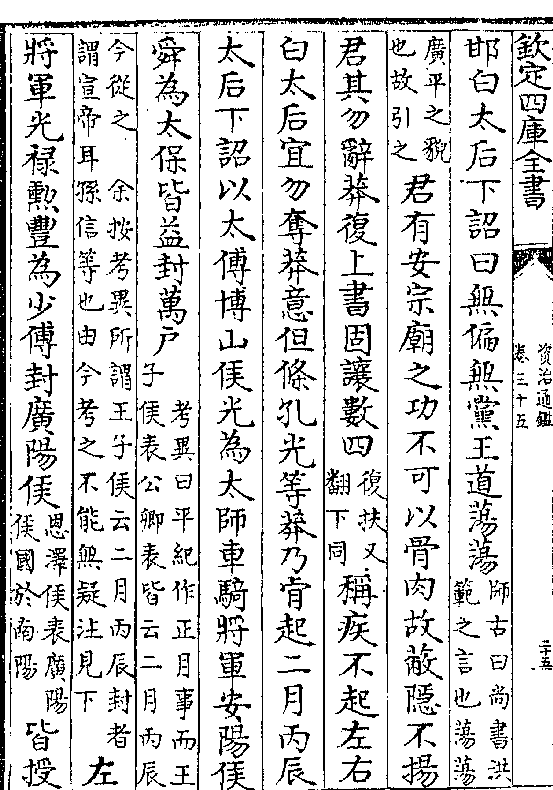 欽定四庫全書
資治通鑑
卷三十五
二十五
邯白太后下詔曰無偏無黨王道蕩蕩
師古曰尚書洪
範之言也蕩蕩
廣平之貌
也故引之
君有安宗廟之功不可以骨肉故蔽隱不揚
君其勿辭莽復上書固讓數四
復扶又
翻下同
稱疾不起左右
白太后宜勿奪莽意但條孔光等莽乃肯起二月丙辰
太后下詔以太傅博山侯光為太師車騎將軍安陽侯
舜為太保皆益封萬戶
考異曰平紀作正月事而王
子侯表公卿表皆云二月丙辰
今從之 余按考異所謂王子侯云二月丙辰封者
謂宣帝耳孫信等也由今考之不能無疑注見下
左
將軍光祿勲豐為少傅封廣陽侯
恩澤侯表廣陽
侯國於南陽
皆授